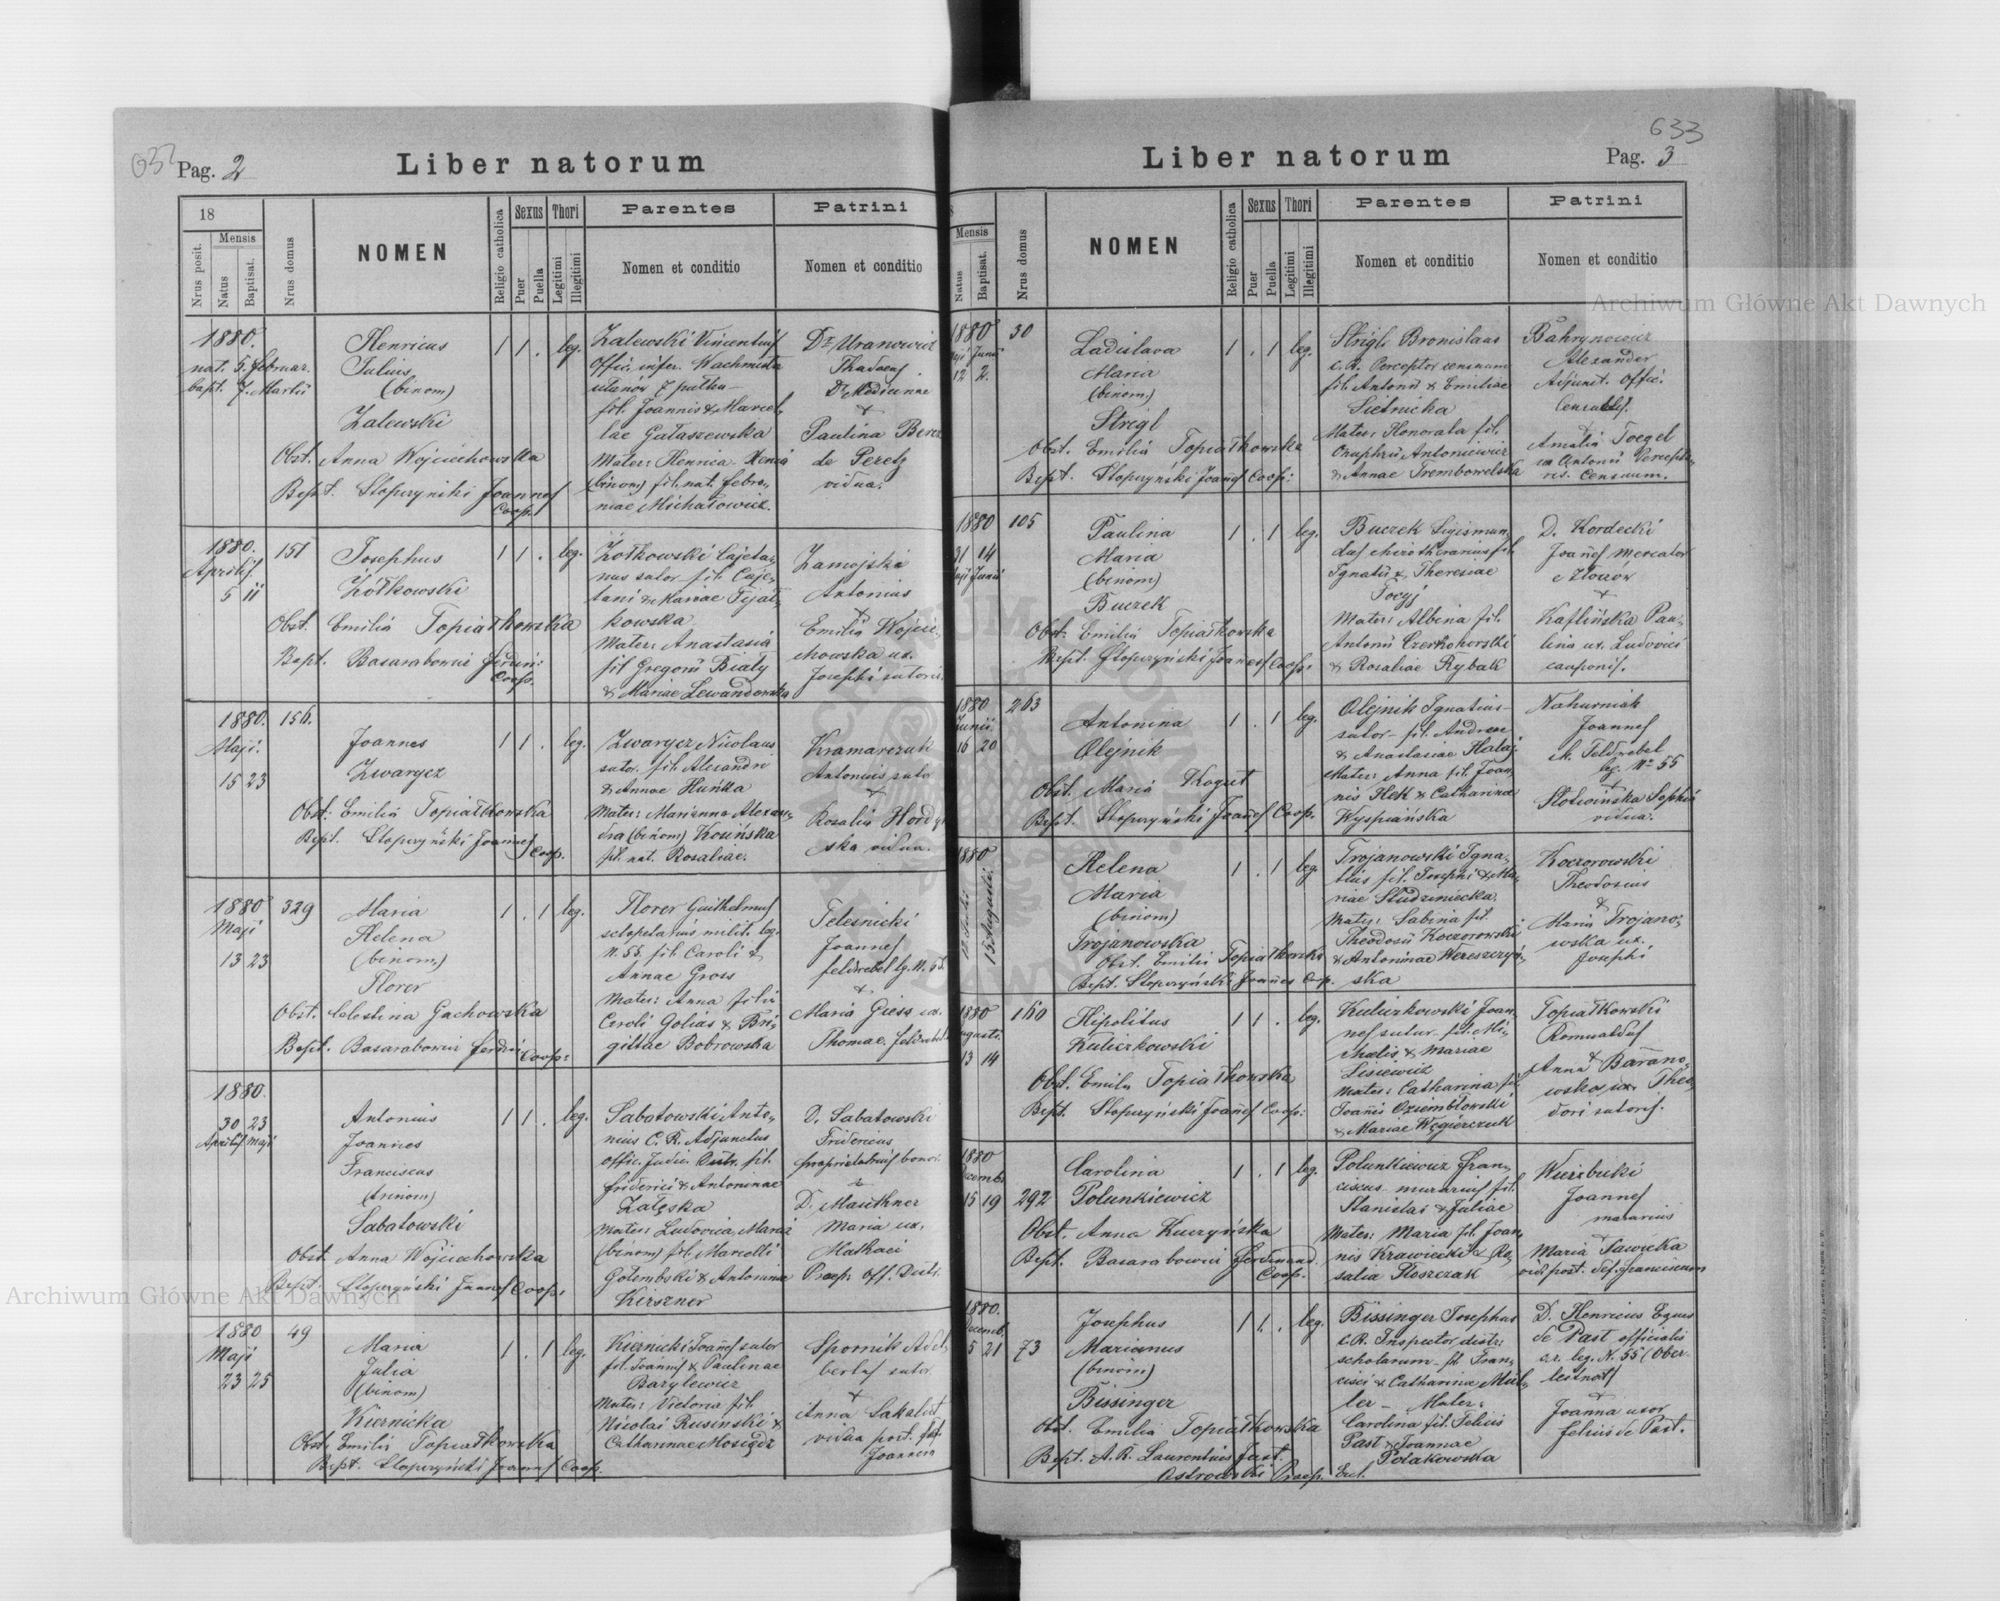 632
Pag. 2
Liber natorum
18
Nrus posit.
Mensis
Natus
Baptisat.
Nrus domus
NOMEN
Religio catholica
Sexus
Puer
Puella
Thori
Legitimi
Illegitimi
Parentes
Nomen et conditio
Patrini
Nomen et conditio
1880.
nat. 5. februar.
bapt. 7. Martii
Henricus
Julius
(binom)
Zalewski
Obst. Anna Wojciechowska
Bapt. Stopczyński Joannes
Coop.
1 1 . leg.
Zalewski Vincentius
Offic. infer. Wachmistz
ułanów 7 pułku
fil. Joannis & Marcel,
lae Gałaszewska
Mater: Henrica Xenia
(binom) fil. nat. Febro,
niae Michałowicz.
Dr Uranowicz
Thadaeus
Dr Medicinae
+
Paulina
de Peretz
vidua.
1880.
Aprilis
5 11
151
Josephus
Żółkowski
Obst. Emilia Topiałkowska
Bapt. Basarabowicz Ferdin:
Coop.
1 1 . leg.
Żółkowski Cajeta,
nus sutor fil. Caje,
tani & Mariae Fijał,
kowska
Mater: Anastasia
fil Gregorii Biały
& Mariae Lewandowska
Zamojski
Antonius
+
Emilia Wojcie,
chowska ux.
Josephi sutoris.
1880.
Maji.
15 23
156.
Joannes
Zwarycz
Obst: Emilia Topiałkowska
Bapt. Stopczyński Joannes Coop.
1 1 . leg.
Zwarycz Nicolaus
sutor. fil. Alexandri
& Annae Huńka
Mater: Marianna Alexan,
dra (binom) Kosińska
fil. nat. Rosaliae.
Kramarczuk
Antonius sutor
+
Rosalia
ska vidua.
1880
Maji
13 23
329
Maria
Helena
(binom)
Florer
Obst. Celestina Gachowska
Bapt. Basarabowicz Ferdin Coop:
1 . 1 leg.
Florer Guilhelmus
sclopetarius milit. leg.
N. 55. fil. Caroli &
Annae Gross
Mater: Anna filia
Caroli Golias & Bri,
gittae Bobrowska
Telesnicki
Joannes
feldwebel lg. N. 55.
+
Maria Giess ux.
Thomae feldwebel.
1880.
30 23
Aprilis Maji
Antonius
Joannes
Franciscus
(trinom)
Sabatowski
Obst. Anna Wojciechowska
Bapt. Stopczyński Joannes Coop:
1 1 . leg.
Sabatowski Anto,
nius C. R. Adjunctus
offic. Judic. Distr. fil.
Friderici & Antoninae
Załęska
Mater: Ludovica Maria
(binom) fil. Marcelli
Gołembski & Antoninae
Kirszner
D. Sabatowski
Fridericus
proprietarius bonor.
+
D. Mauthner
Maria ux.
Mathaei
Praep. Off. Distr.
1880
Maji
23 25
49
Maria
Julia
(binom)
Kiernicka
Obst: Emilia Topiałkowska
Bapt. Stopczyński Joannes Coop.
1 . 1 leg.
Kiernicki Joanes sutor
fil. Joannis & Paulinae
Barylewicz
Mater: Victoria fil.
Nicolai Rusinski &
Catharinae
Spornik Adal,
bertus sutor
+
Anna
vidua post. def.
Joannem
633
Liber natorum
Pag. 3
Mensis
Natus
Baptisat.
Nrus domus
NOMEN
Religio catholica
Sexus
Puer
Puella
Thori
Legitimi
Illegitimi
Parentes
Nomen et conditio
Patrini
Nomen et conditio
1880
Maji Junii
12 2.
30
Ladislava
Maria
(binom)
Strigl
Obst. Emilia Topiałkowska
Bapt. Stopczyński Joanes Coop:
1 . 1 leg.
Strigl Bronislaus
c. R. Perceptor censuum
fil. Antonii & Emiliae
Sietnicka
Mater: Honorata fil.
Onuphrii Antoniewicz
& Annae Trembowelska
Bahrynowicz
Alexander
Adjunct. Offic.
+
Amalia Toegel
ux Antonii Percepto,
ris. Censuum.
1880
31 14
Maji Junii
105
Paulina
Maria
(binom)
Buczek
Obst: Emilia Topiałkowska
Bapt. Stopczyński Joanes Coop:
1 . 1 leg.
Buczek Sigismun,
dus chirothecarius fil.
Ignatii & Theresiae
Mater: Albina fil.
Antonii Czerkhorski
& Rosaliae Rybak
D. Kordecki
Joanes mercator
e Złoczów
+
Kaflińska Pau,
lina ux. Ludovici
cauponis.
1880
Junii
16 20
263
Antonina
Olejnik
Obst. Maria Kogut
Bapt. Stopczyński Joanes Coop.
1 . 1 leg.
Olejnik Ignatius
sutor fil. Andreae
& Anastasiae Hataj
Mater: Anna fil. Joan,
nis Hek & Catharinae
Wyspiańska
Nahurniak
Joannes
Feldwebel
lg. No 55
+
Słotwińska Sophia
vidua.
1880
12. Julii
15 Augusti
Helena
Maria
(binom)
Trojanowska
Obst. Emilia Topiałkowska
Bapt. Stopczyński Joanes Cop.
1 . 1 leg.
Trojanowski Igna,
tius fil. Josephi & Ma,
riae Studzieniecka.
Mater: Sabina fil.
Theodosii Koczorowski
& Antoninae Wereszczyń,
ska
Koczorowski
Theodosius
&
Maria Trojano,
wska ux.
Josephi
1880
Augusti
13 14
160
Hipolitus
Kuliczkowski
Obst. Emilia Topiałkowska
Bapt. Stopczyński Joanes Coop:
1 1 . leg.
Kuliczkowski Joan,
nes sutor fil. Mi,
chaelis & Mariae
Lisiewicz
Mater: Catharina fil.
Joanis Oziembłowski
& Mariae Węgierczuk
Topiałkowski
Romualdus
+
Anna Barano,
wska ux. Theo,
dori sutoris.
1880
Decembr.
15 19
292
Carolina
Polunkiewicz
Obst. Anna Kuczyńska
Bapt. Basarabowicz Ferdinand.
Coop.
1 . 1 leg.
Polunkiewicz Fran,
ciscus murarius fil.
Stanislai & Juliae
Mater: Maria fil. Joan,
nis Krawiecki & Ro,
salia Płoszczak
Wierzbicki
Joannes
murarius
Maria Sawicka
vid. post. def. Franciscum
1880.
Decemb.
5 21
73
Josephus
Marianus
(binom)
Bissinger
Obst. Emilia Topiałkowska
Bapt. A. R. Laurentius Just.
Ostrowski Praep. Ext.
1 1 . leg.
Bissinger Josephus
c. R. Inspector distr:
scholarum fil. Fran,
cisci & Catharina Mül,
ler Mater:
Carolina fil. Felicis
Past & Joannae
Polakowska
D. Henricus Eques
de Past officialis
c. r. leg. N. 55 (Ober
leitnat)
+
Joanna uxor
Felicis de Past.
Archiwum Główne Akt Dawnych
Archiwum Główne Akt Dawnych